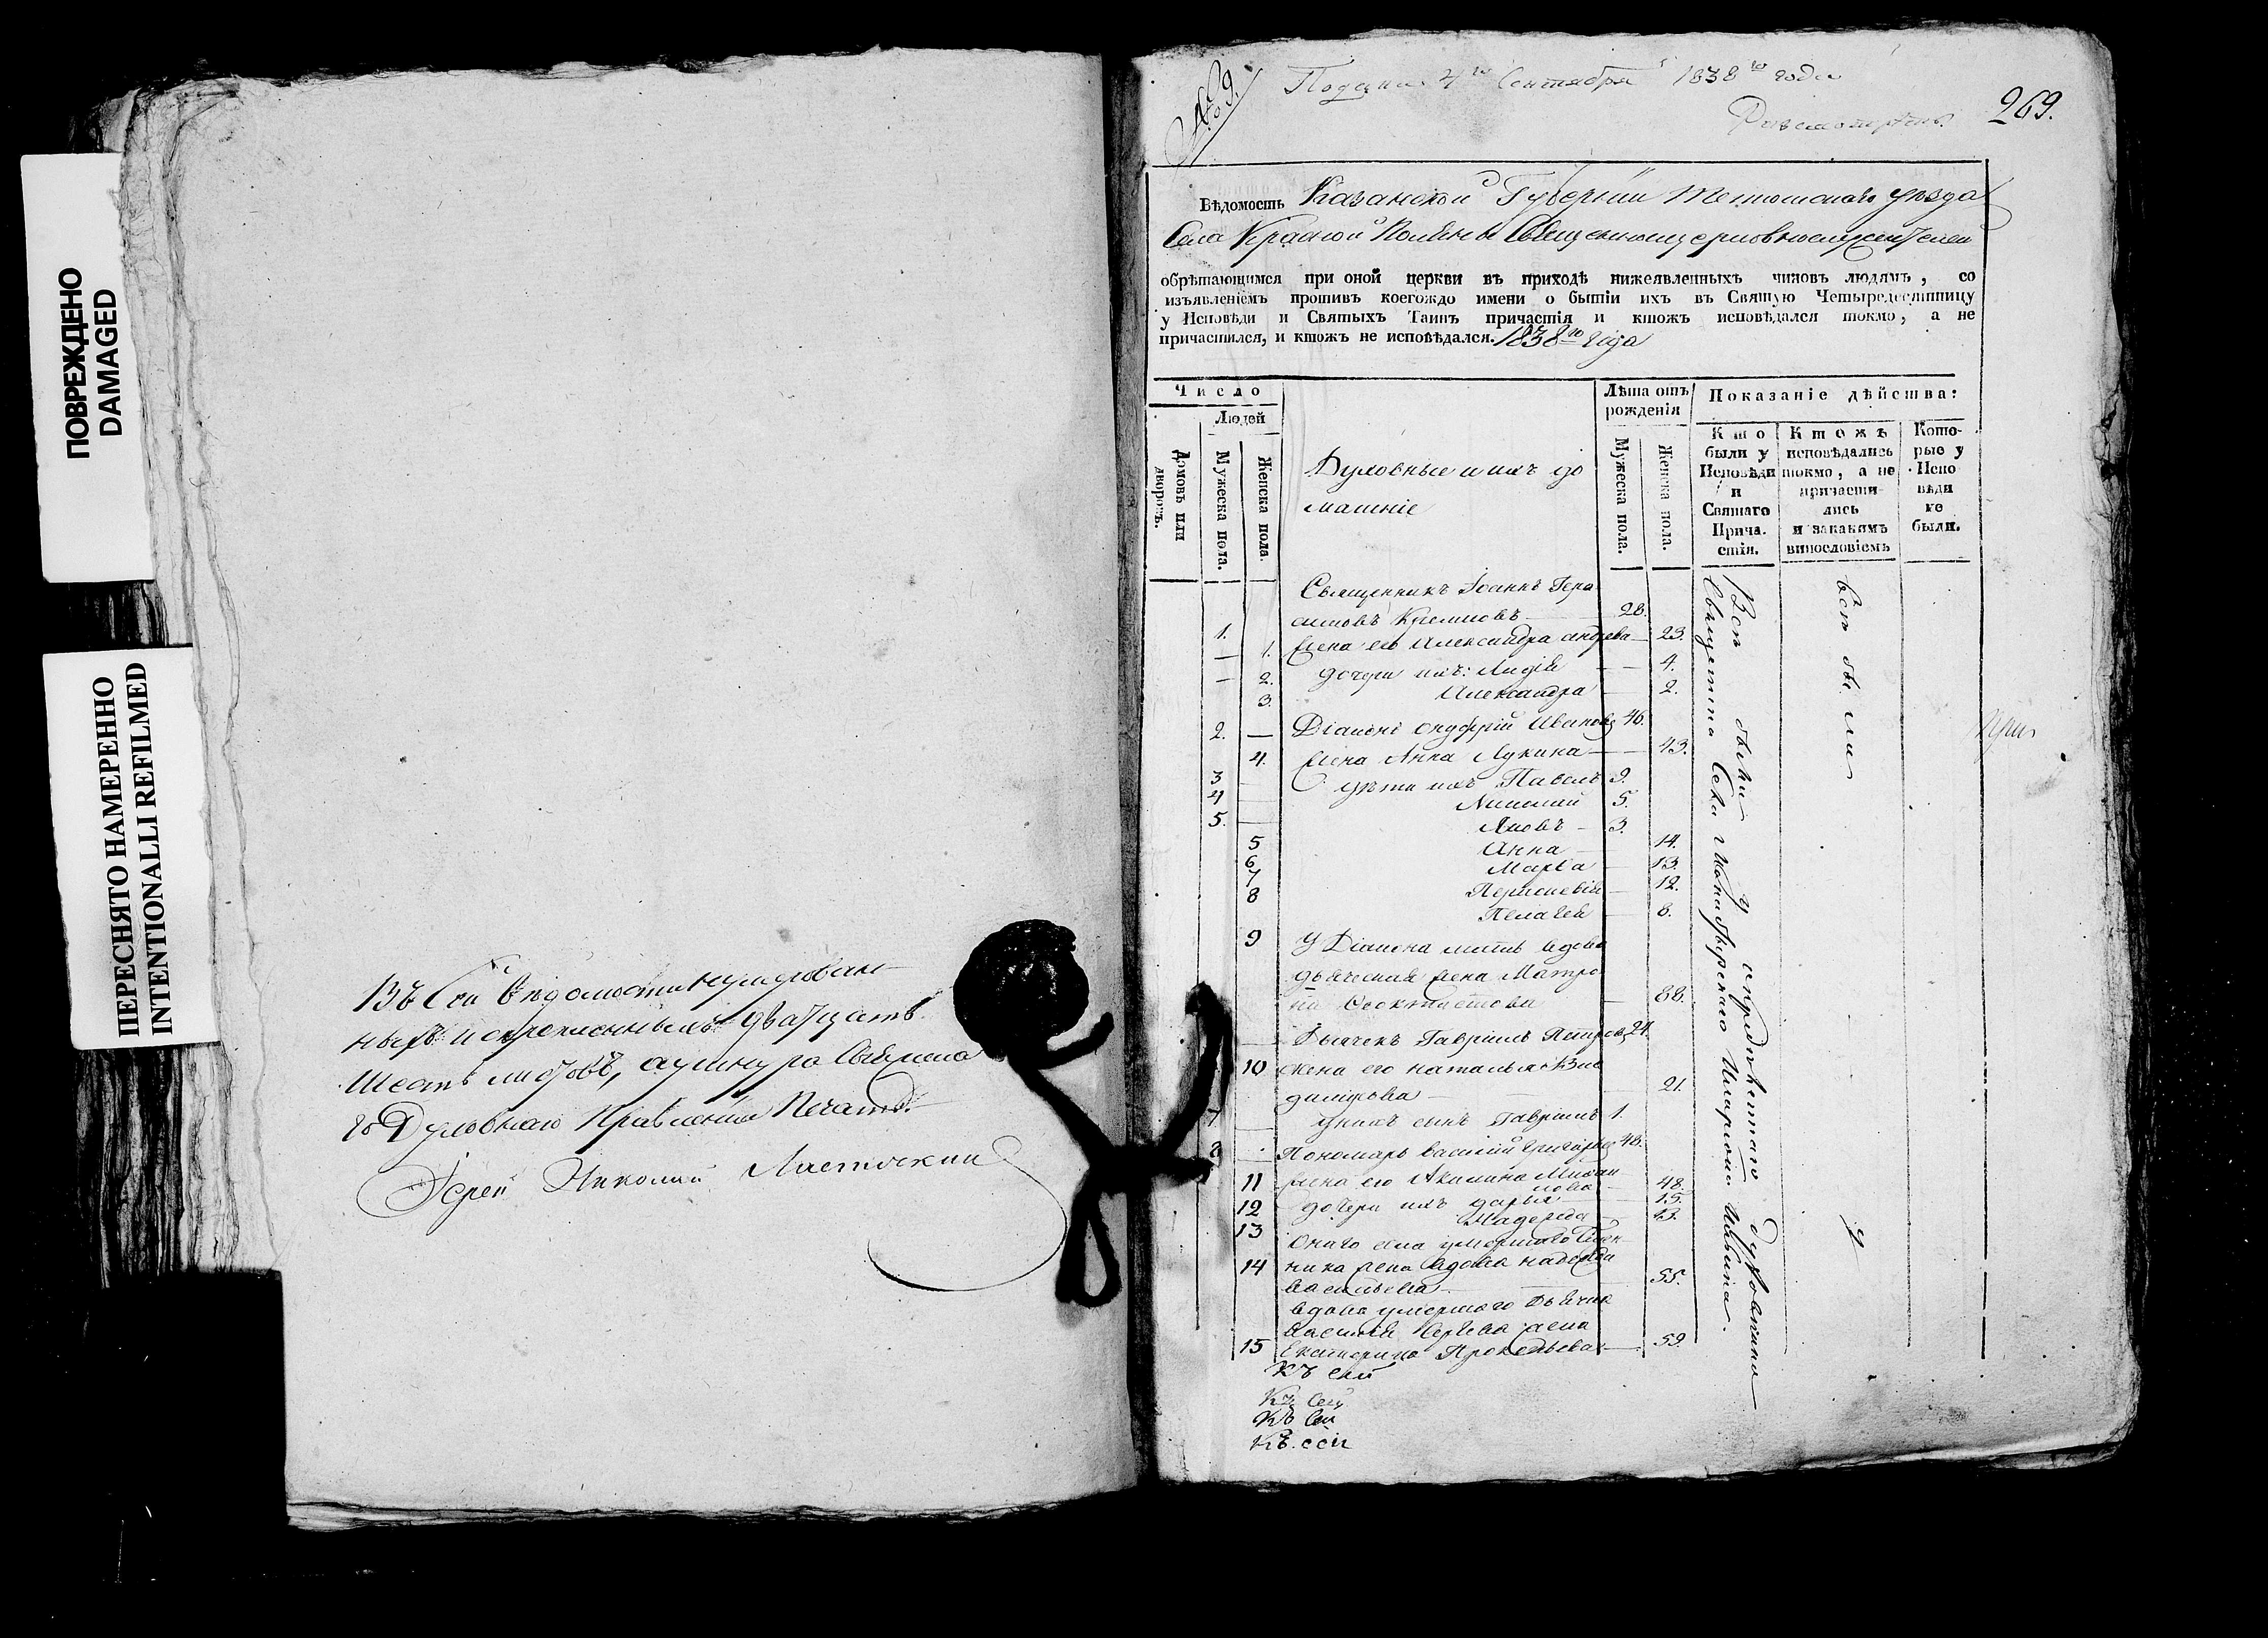 ПОВРЕЖДЕНО
DAMAGED
ПЕРЕСНЯТО НАМЕРЕННО
INTENTIONALLI REFILMED
Въ Сей Вѣдомости нумерован-
ныхъ и скрепленныхъ двадцать
шесть листовъ, а у шнура
Духовнаго Правленія Печать.
Іерей Николай Ласточкин
№ 9.
Подана 4го Сентября 1838го года
269.
Вѣдомость Казанской Губерніи Тетюшскаго уѣзда
Села Красной Поляны Священноцерковнослужителей
обрѣтающимся при оной церкви въ приходѣ нижеявленныхъ чиновъ людямъ, со
изъявленіемъ противъ коегождо имени о бытіи ихъ въ Святую Четыредесятницу
у Исповѣди и Святыхъ Таинъ причастія и ктожъ исповѣдался токмо, а не
причастился, и ктожъ не исповѣдался. 1838го Года
Число
Людей
Домовъ или дворовъ.
Мужеска пола.
Женска пола.
Духовные и ихъ до
машніе
Лѣта отъ
рожденія
Мужеска пола.
Женска пола.
Показаніе дѣйства:
Кто
были у
Исповѣди
и
Святаго
Прича-
стія.
Ктожъ
исповѣдались
токмо, а не
причасти-
лись
и закакимъ
винословіемъ
Кото-
рые у
Испо
вѣди
не
были.
Священникъ Іоаннъ Гера
симовъ 28.
1.
1. Жена его Александра Андрева 23.
2. дочери ихъ: Лидія 4.
3. Александра 2.
2. Діаконъ Онуфрій Ивановъ 46.
4. Жена Анна Лукина 43.
3 дѣти ихъ Павелъ 9.
4 Николай 5.
5. Яковъ 3.
5 Анна 14.
6 Марѳа 13.
7 Параскевія 12.
8 Пелагея 8.
9 У Діакона мать вдова
дьяческая жена Матро
на Феоктистова 88.
Дьячекъ Гавріилъ Петровъ 24.
10 жена его Наталья
21.
7 у нихъ сынъ Гавріилъ 1.
8 Пономарь Василий Григорьев 48.
11 Жена его Акилина Михаи
лова 48.
12 дочери ихъ Дарья 15.
13 Надежда 13.
Онаго села умершаго Свящ
14 ника жена вдова Надежда
Васильева 55.
вдова умершаго Дьячка
Василія Сергѣева жена
15 Екатерина Прокопьева 59.
Къ сей
Къ Сей
Къ Сей
Къ сей
Всѣ были у
Священника Села
Духовника
Всѣ были